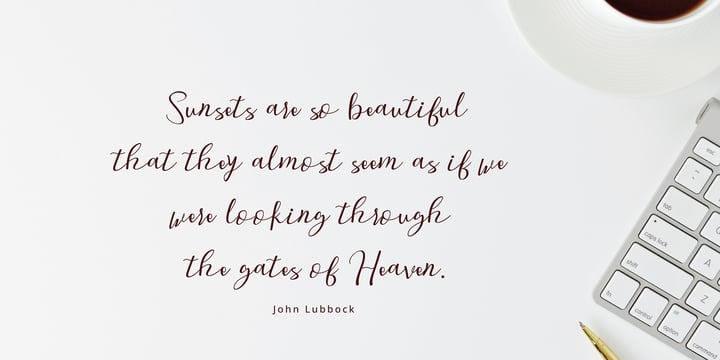 Sunsets are so beautiful
that they almost seem as if we
were looking through
the gates of Heaven.
John Lubbock
esc
tab
Q
caps lock
A
shift
Z
fn
control
option
command